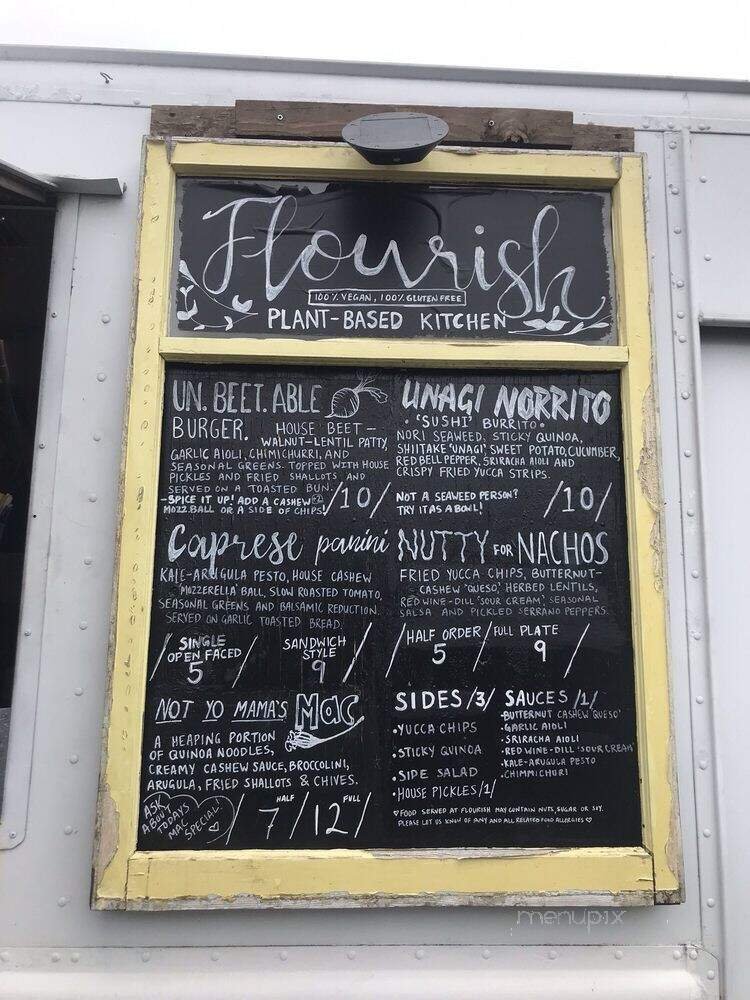 Flourish
100% VEGAN, 100% GLUTEN FREE
PLANT-BASED KITCHEN
UN. BEET. ABLE
BURGER. HOUSE BEET-
WALNUT-LENTIL PATTY,
GARLIC AIOLI, CHIMICHURRI, AND
SEASONAL GREENS. TOPPED WITH HOUSE
PICKLES AND FRIED SHALLOTS AND
SERVED ON A TOASTED BUN.
-SPICE IT UP! ADD A CASHEW
MOZZ.BALL OR A SIDE OF CHIPS!
/10/
UNAGI NORRITO
• 'SUSHI' BURRITO •
NORI SEAWEED, STICKY QUINOA,
SHIITAKE 'UNAGI', SWEET POTATO, CUCUMBER,
RED BELL PEPPER, SRIRACHA AIOLI AND
CRISPY FRIED YUCCA STRIPS.
NOT A SEAWEED PERSON?
TRY IT AS A BOWL!
/10/
Caprese panini
KALE-ARUGULA PESTO, HOUSE CASHEW
'MOZZERELLA' BALL, SLOW ROASTED TOMATO,
SEASONAL GREENS AND BALSAMIC REDUCTION.
SERVED ON GARLIC TOASTED BREAD.
/ SINGLE
OPEN FACED
5 /
SANDWICH
STYLE
9 /
NUTTY FOR NACHOS
FRIED YUCCA CHIPS, BUTTERNUT-
CASHEW 'QUESO', HERBED LENTILS,
RED WINE-DILL 'SOUR CREAM' SEASONAL
SALSA AND PICKLED SERRANO PEPPERS.
/ HALF ORDER / FULL PLATE /
5 9
NOT YO MAMA'S MAC
A HEAPING PORTION
OF QUINOA NOODLES,
CREAMY CASHEW SAUCE, BROCCOLINI,
ARUGULA, FRIED SHALLOTS & CHIVES.
ASK
ABOUT
TODAYS
MAC
SPECIAL!
HALF FULL
/ 7 / 12 /
SIDES /3/
• YUCCA CHIPS
• STICKY QUINOA
• SIDE SALAD
• HOUSE PICKLES /1/
SAUCES /1/
• BUTTERNUT CASHEW 'QUESO'
• GARLIC AIOLI
• SRIRACHA AIOLI
• RED WINE-DILL 'SOUR CREAM'
• KALE-ARUGULA PESTO
• CHIMMICHURI
♡ FOOD SERVED AT FLOURISH MAY CONTAIN NUTS, SUGAR OR SOY.
PLEASE LET US KNOW OF ANY AND ALL RELATED FOOD ALLERGIES ♡
menupix